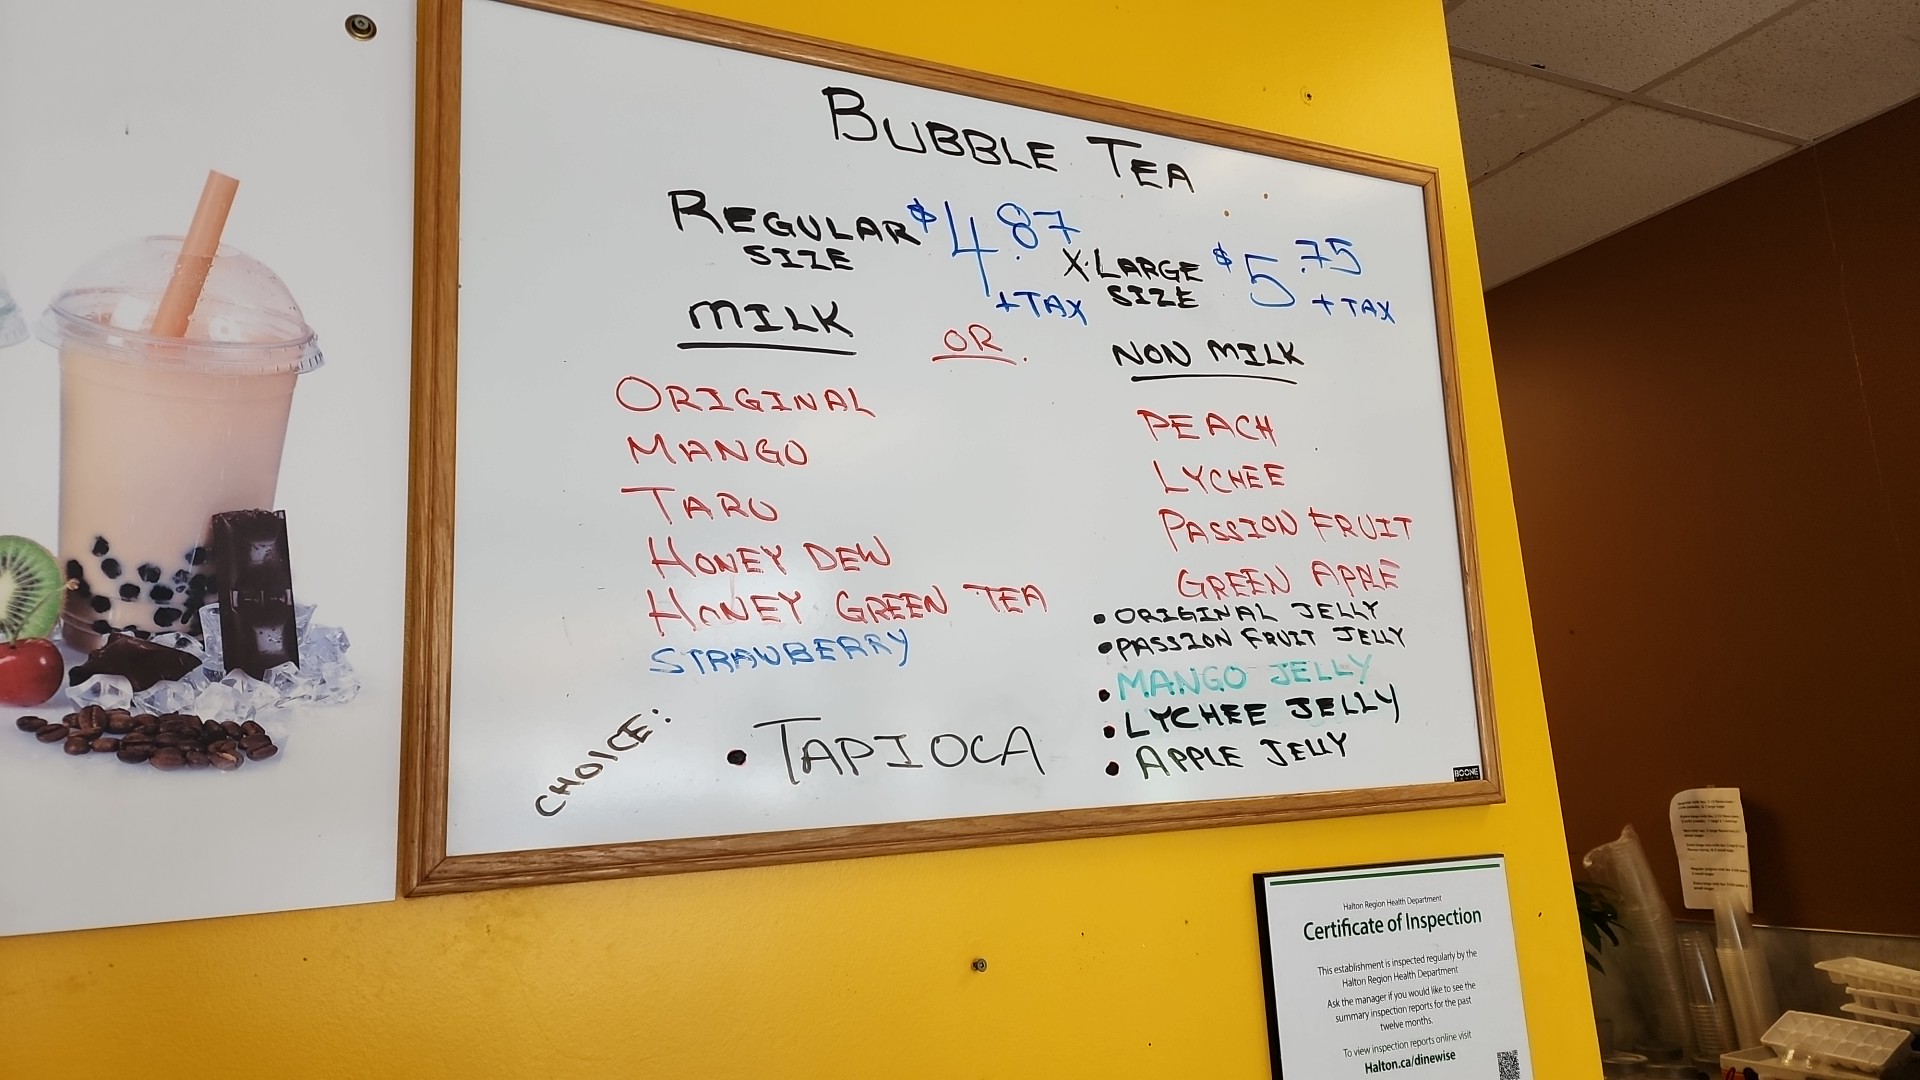 BUBBLE TEA
REGULAR SIZE $4.87 +TAX
X-LARGE SIZE $5.75 +TAX
MILK
OR
NON MILK
ORIGINAL
MANGO
TARO
HONEY DEW
HONEY GREEN TEA
STRAWBERRY
PEACH
LYCHEE
PASSION FRUIT
GREEN APPLE
CHOICE:
• TAPIOCA
• ORIGINAL JELLY
• PASSION FRUIT JELLY
• MANGO JELLY
• LYCHEE JELLY
• APPLE JELLY
BOONE
Halton Region Health Department
Certificate of Inspection
This establishment is inspected regularly by the
Halton Region Health Department
Ask the manager if you would like to see the
summary inspection reports for the past
twelve months.
To view inspection reports online visit
Halton.ca/dinewise